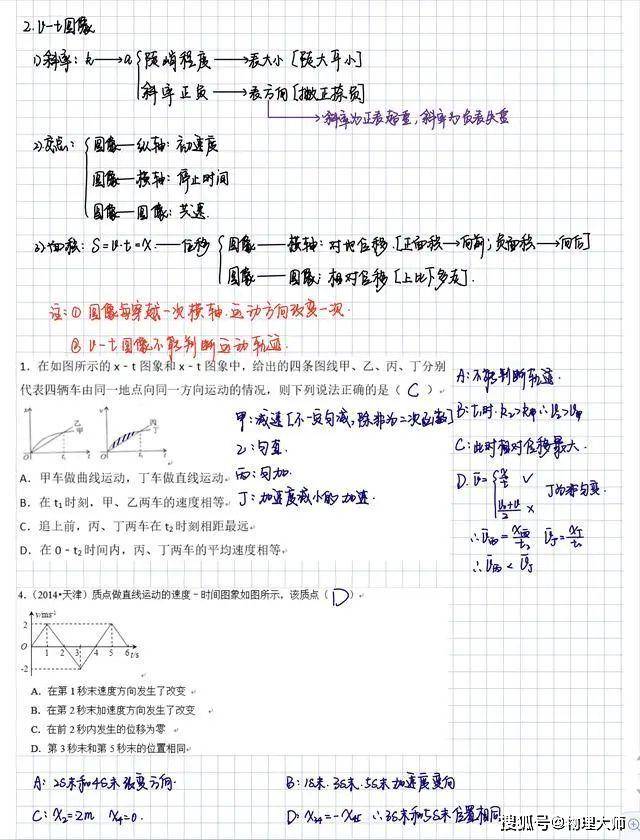 2. v-t图像
1) 斜率: k→a 陡峭程度→表大小[陡大平小]
斜率正负→表方向[撇正捺负]
斜率为正表超重, 斜率为负表失重
2) 交点: 图像—纵轴: 初速度
图像—横轴: 停止时间
图像—图像: 共速.
3) 面积: S=v·t=x.—位移 图像—横轴: 对地位移.[正面积→向前; 负面积→向后]
图像—图像: 相对位移[上比下多走].
注: ① 图像每穿越一次横轴.运动方向改变一次.
② v-t图像不能判断运动轨迹.
1. 在如图所示的x-t图象和x-t图象中，给出的四条图线甲、乙、丙、丁分别
代表四辆车由同一地点向同一方向运动的情况，则下列说法正确的是（ C ）
x 乙 甲 O t₁ t
v 丙 丁 O t₂ t
甲: 减速[不一定匀减, 除非为二次函数]
乙: 匀直.
丙: 匀加.
丁: 加速度减小的加速.
A: 不能判断轨迹.
B: t₁时. k乙>k甲 ∴v乙>v甲
C: 此时相对位移最大.
D. v̄= x/t ✓
(v₀+v)/2 ×
丁为非匀变.
∴v̄丙=x丙/t₂ v̄丁=x丁/t₂
∴v̄丙<v̄丁
A．甲车做曲线运动，丁车做直线运动
B．在t₁时刻，甲、乙两车的速度相等
C．追上前，丙、丁两车在t₂时刻相距最远
D．在0-t₂时间内，丙、丁两车的平均速度相等
4.（2014•天津）质点做直线运动的速度-时间图象如图所示，该质点（ D ）
v/ms⁻¹
2
O 1 2 3 4 5 6 t/s
-2
A．在第1秒末速度方向发生了改变
B．在第2秒末加速度方向发生了改变
C．在前2秒内发生的位移为零
D．第3秒末和第5秒末的位置相同
A: 2s末和4s末改变方向.
B: 1s末.3s末.5s末加速度变向
C: x₂=2m x₄=0.
D: x₃₄=-x₄₅ ∴3s末和5s末位置相同
搜狐号@物理大师